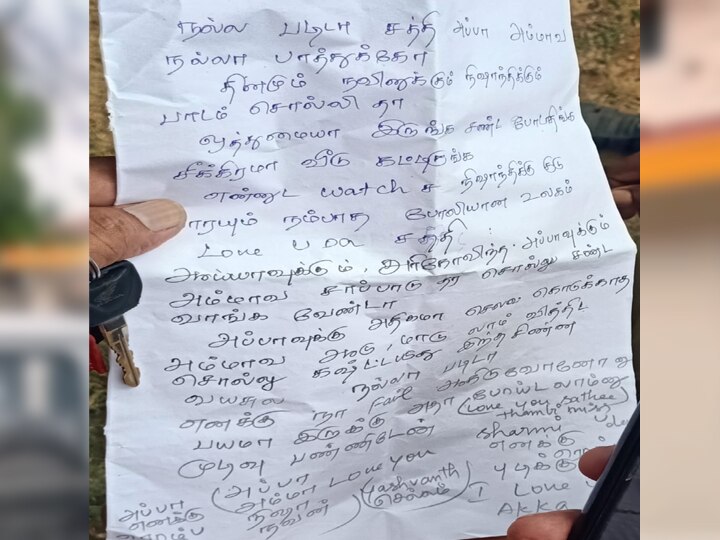 நல்ல படிடா சத்தி அப்பா அம்மாவ
நல்லா பாத்துக்கோ
தினமும் நவினுக்கும் நிஷாந்திக்கும்
பாடம் சொல்லி தா
ஒத்துமையா இருங்க சண்ட போடாதிங்க
சீக்கிரமா வீடு கட்டிடுங்க
என்னுட watch ச நிஷாந்திக்கு குடு
யாரயும் நம்பாத போலியான உலகம்
Love U Da சத்தி
அம்மாவுக்கும், அப்பாவுக்கும்
அம்மாவ சாப்பாடு தர சொல்லு சண்ட
வாங்க வேண்டா
அப்பாவுக்கு அதிகமா செலவ கொடுக்காத
அம்மாவ ஆடு, மாடு லாம் வித்திட
சொல்லு கஷ்ட்டபடுது இந்த சின்ன
வயசுல நல்லா படிடா
எனக்கு நா Fail ஆகிடுவோனோ னு
பயமா இருக்கு அதா போய்டலாம்னு
முடிவு பண்ணிடேன் (Love you Sathee
thambi miss
sharmi
அப்பா (அப்பா அம்மா Love you எனக்கு
எனக்கு நிஷா (Yashvanth செல்லம்) I Love
நவின்) Akka